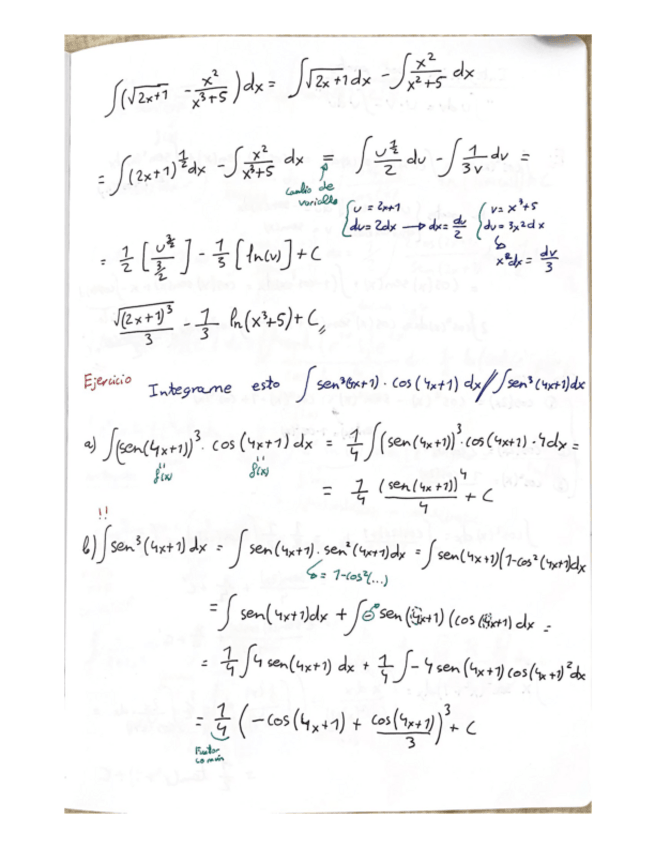 ∫(√2x+1 - x²/x³+5) dx = ∫√2x+1 dx - ∫ x²/x²+5 dx
= ∫(2x+1)^½ dx - ∫ x²/x³+5 dx = ∫ u^½/2 du - ∫ 1/3v dv =
Cambio de variable
{ u = 2x+1
du = 2dx → dx = du/2
{ v = x³+5
dv = 3x²dx
x²dx = dv/3
= 1/2 [u^(3/2)/(3/2)] - 1/3 [ln(v)] + C
√(2x+1)³/3 - 1/3 ln(x³+5) + C
Ejercicio Integrame esto ∫ sen³(4x+1) · cos(4x+1) dx // ∫ sen³(4x+1) dx
a) ∫(sen(4x+1))³ · cos(4x+1) dx = 1/4 ∫(sen(4x+1))³ · cos(4x+1) · 4dx =
f(x) f'(x)
= 1/4 (sen(4x+1))⁴/4 + C
!!
b) ∫ sen³(4x+1) dx = ∫ sen(4x+1) · sen²(4x+1) dx = ∫ sen(4x+1)(1-cos²(4x+1)dx
= 1-cos²(...)
= ∫ sen(4x+1)dx + ∫ - sen(4x+1) (cos(4x+1) dx =
= 1/4 ∫ 4 sen(4x+1) dx + 1/4 ∫ -4 sen(4x+1) cos(4x+1)² dx
= 1/4 (-cos(4x+1) + cos(4x+1)/3)³ + C
Factor común